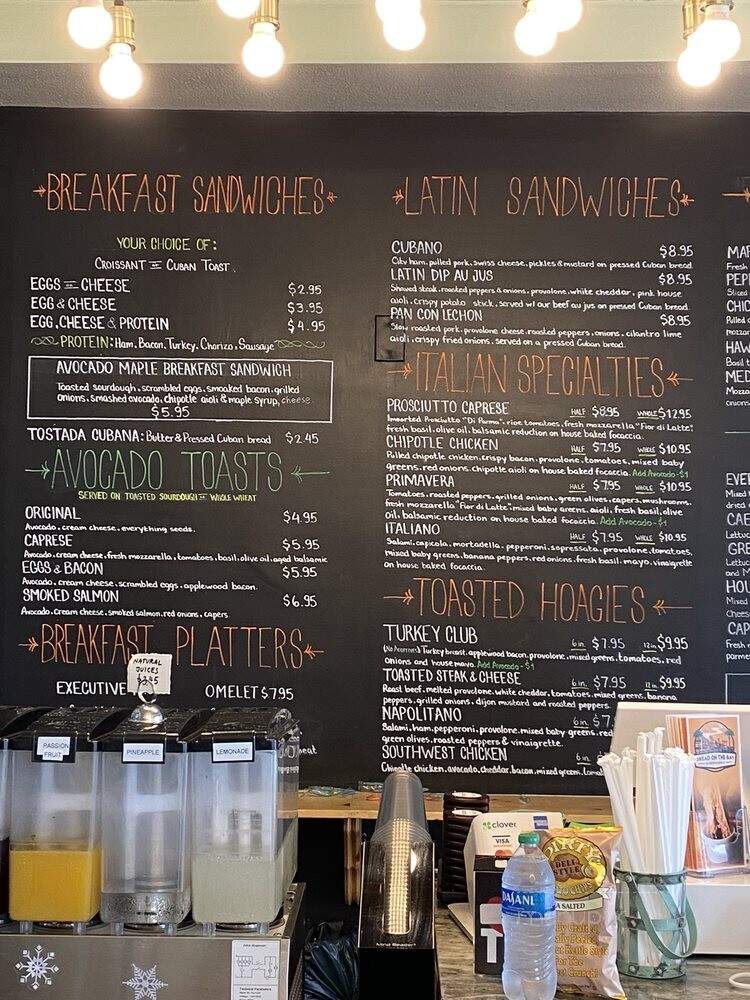 BREAKFAST SANDWICHES
YOUR CHOICE OF:
CROISSANT OR CUBAN TOAST
EGGS OR CHEESE $2.95
EGG & CHEESE $3.95
EGG, CHEESE & PROTEIN $4.95
PROTEIN: Ham, Bacon, Turkey, Chorizo, Sausage
AVOCADO MAPLE BREAKFAST SANDWICH
Toasted sourdough, scrambled eggs, smoaked bacon, grilled
onions, smashed avocado, chipotle aioli & maple syrup, cheese.
$5.95
TOSTADA CUBANA: Butter & Pressed Cuban bread $2.45
AVOCADO TOASTS
SERVED ON TOASTED SOURDOUGH OR WHOLE WHEAT
ORIGINAL $4.95
Avocado, cream cheese, everything seeds.
CAPRESE $5.95
Avocado, cream cheese, fresh mozzarella, tomatoes, basil, olive oil, aged balsamic
EGGS & BACON $5.95
Avocado, cream cheese, scrambled eggs, applewood bacon.
SMOKED SALMON $6.95
Avocado, cream cheese, smoked salmon, red onions, capers
BREAKFAST PLATTERS
EXECUTIVE OMELET $7.95
NATURAL
JUICES
PASSION
FRUIT
PINEAPPLE
LEMONADE
LATIN SANDWICHES
CUBANO $8.95
City ham, pulled pork, swiss cheese, pickles & mustard on pressed Cuban bread
LATIN DIP AU JUS $8.95
Shaved steak, roasted peppers & onions, provolone, white cheddar, pink house
aioli, crispy potato stick, served w/ our beef au jus on pressed Cuban bread
PAN CON LECHON $8.95
Slow roasted pork, provolone cheese, roasted peppers, onions, cilantro lime
aioli, crispy fried onions, served on a pressed Cuban bread.
ITALIAN SPECIALTIES
PROSCIUTTO CAPRESE HALF $8.95 WHOLE $12.95
Imported Prosciutto "Di Parma", ripe tomatoes, fresh mozzarella "Fior di Latte"
fresh basil, olive oil, balsamic reduction on house baked focaccia.
CHIPOTLE CHICKEN HALF $7.95 WHOLE $10.95
Pulled chipotle chicken, crispy bacon, provolone, tomatoes, mixed baby
greens, red onions, chipotle aioli on house baked focaccia. Add Avocado - $1
PRIMAVERA HALF $7.95 WHOLE $10.95
Tomatoes, roasted peppers, grilled onions, green olives, capers, mushrooms,
fresh mozzarella "Fior di Latte", mixed baby greens, aioli, fresh basil, olive
oil, balsamic reduction on house baked focaccia. Add Avocado - $1
ITALIANO HALF $7.95 WHOLE $10.95
Salami, capicola, mortadella, pepperoni, sopressata, provolone, tomatoes,
mixed baby greens, banana peppers, red onions, fresh basil, mayo, vinaigrette
on house baked focaccia.
TOASTED HOAGIES
TURKEY CLUB 6 in. $7.95 12 in $9.95
Turkey breast, applewood bacon, provolone, mixed greens, tomatoes, red
onions and house mayo. Add Avocado - $1
TOASTED STEAK & CHEESE 6 in. $7.95 $9.95
Roast beef, melted provolone, white cheddar, tomatoes, mixed greens, banana
peppers, grilled onions, dijon mustard and roasted peppers
NAPOLITANO 6 in. $7.
Salami, ham, pepperoni, provolone, mixed baby greens, red
green olives, roasted peppers & vinaigrette.
SOUTHWEST CHICKEN 6 in
Chipotle chicken, avocado, cheddar, bacon, mixed greens, tomat
clover
VISA
DASANI
DIRTY
DELI
STYLE
SALTED
BREAD ON THE BAY
Mind Reader